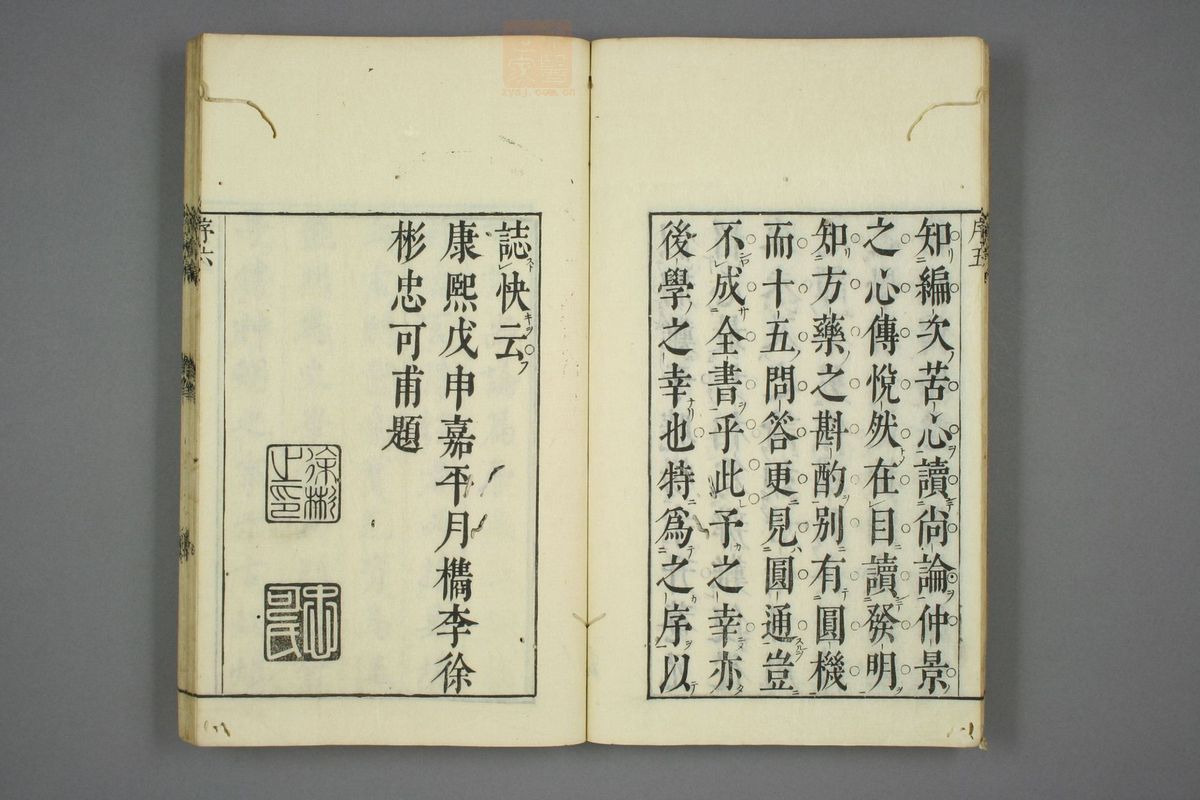 知編次苦心讀尚論仲景
之心傳恱然在目讀發明
知方藥之斟酌别有圓機
而十五問答更見圓通豈
不成全書乎此予之幸亦
後學之幸也特爲之序以
序五
誌快云
康熙戊申嘉平月檇李徐
彬忠可甫題
徐彬之印
忠可氏
序六
zysj.com.cn